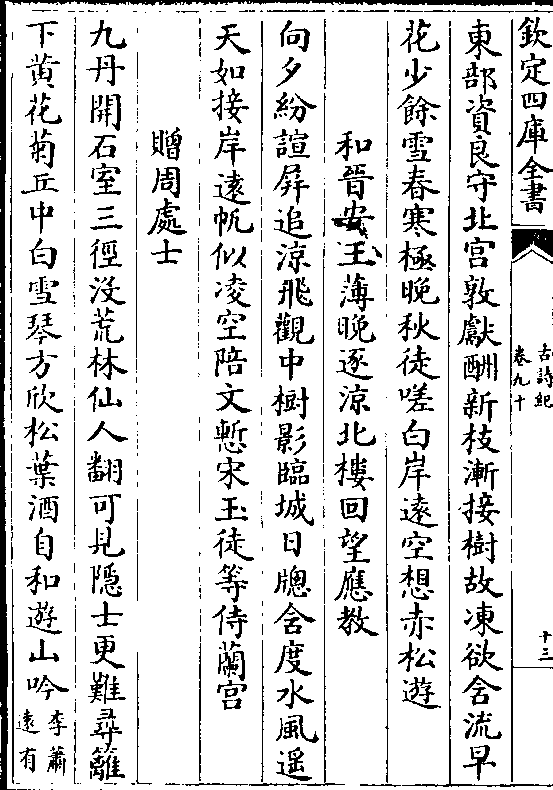 欽定四庫全書
古詩紀
卷九十
十三
東部資良守北宫敦獻酬新枝漸接樹故凍欲含流早
花少餘雪春寒極晚秋徒嗟白岸遠空想赤松遊
和晉安王薄晚逐涼北樓回望應教
向夕紛諠屏追涼飛觀中樹影臨城日牕含度水風遥
天如接岸遠帆似凌空陪文慙宋玉徒等侍蘭宫
贈周處士
九丹開石室三徑没荒林仙人翻可見隠士更難尋籬
下黄花菊丘中白雪琴方欣松葉酒自和遊山吟
李蕭
遠有